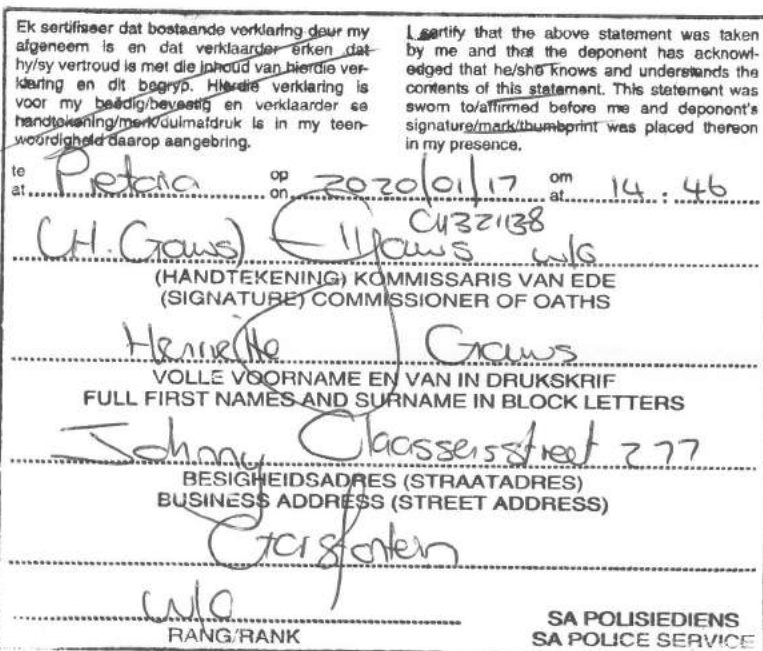 Ek sertifiseer dat bostaande verklaring deur my
afgeneem is en dat verklaarder erken dat
hy/sy vertroud is met die inhoud van hierdie ver-
klaring en dit begryp. Hierdie verklaring is
voor my beëdig/bevestig en verklaarder se
handtekening/merk/duimafdruk is in my teen-
woordigheid daarop aangebring.
I certify that the above statement was taken
by me and that the deponent has acknowl-
edged that he/she knows and understands the
contents of this statement. This statement was
sworn to/affirmed before me and deponent's
signature/mark/thumbprint was placed thereon
in my presence.
te
at Pretoria op
on 2020/01/17 om
at 14:46
(H. Gouws) HGouws W/O
(HANDTEKENING) KOMMISSARIS VAN EDE
(SIGNATURE) COMMISSIONER OF OATHS
Henriette Gouws
VOLLE VOORNAME EN VAN IN DRUKSKRIF
FULL FIRST NAMES AND SURNAME IN BLOCK LETTERS
Johnny Claassensstreet 277
BESIGHEIDSADRES (STRAATADRES)
BUSINESS ADDRESS (STREET ADDRESS)
Garsfontein
W/O
RANG/RANK
SA POLISIEDIENS
SA POLICE SERVICE